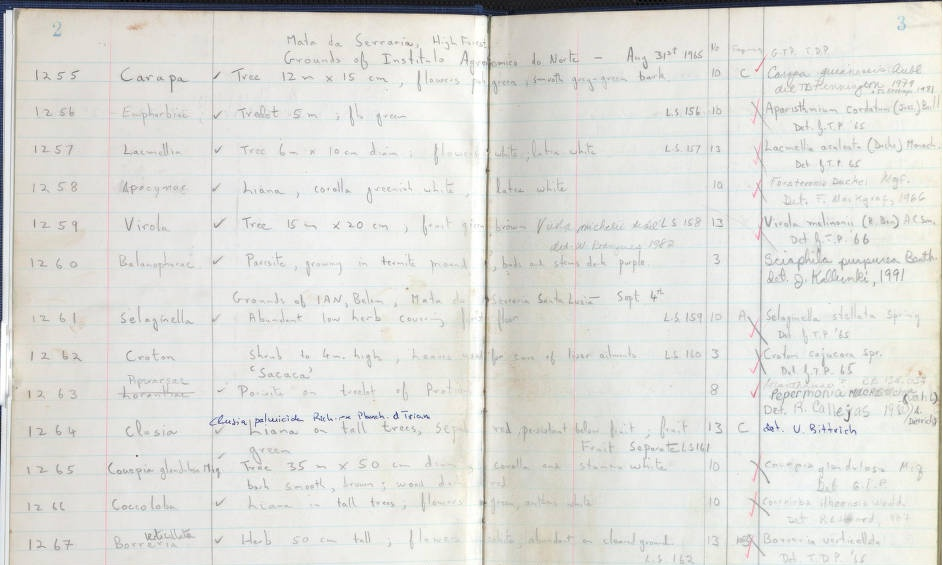 2
3
Mata da Serraria, High Forest
Grounds of Instituto Agronomico do Norte - Aug 31st 1965 No G.T.P. T.D.P
1255 Carapa ✓ Tree 12 m x 15 cm, flowers green, smooth grey-green bark 10 C Carapa guianensis Aubl
det TD Pennington 1979
1256 Euphorbiac. ✓ Treelet 5 m; fls green L.S. 156 10 Aparisthmium cordatum (Juss.) Baill
Det. G.T.P. '65
1257 Lacmellia ✓ Tree 6m x 10 cm diam; flowers white, latex white L.S. 157 13 Lacmellia aculeata (Ducke) Monach.
Det. G.T.P. 65
1258 Apocynac ✓ Liana, corolla greenish white, latex white 10 Forsteronia Duckei Mgf.
Det. F. Markgraf, 1966
1259 Virola ✓ Tree 15 m x 20 cm, fruit green brown Virola michelii Heckel L.S 158 13 Virola melinonii (R. Ben) A.C.Sm.
det. W Rodrigues 1982 Det G.T.P. '66
1260 Balanophorac ✓ Parasite, growing in termite mound, buds and stems dark purple. 3 Sciaphila purpurea Benth.
det. J. Kallunki, 1991
Grounds of IAN, Belem, Mata da Serraria Santa Luzia - Sept 4th
1261 Selaginella ✓ Abundant low herb covering forest floor L.S. 159 10 A Selaginella stellata Spring
Det G.T.P. '65
1262 Croton Shrub to 4m. high, leaves used for cure of liver ailments L.S. 160 3 Croton cajucara spr.
'Sacaca' Det G.T.P. 65
Piperaceae
1263 Loranthac ✓ Parasite on treelet of 8 Peperomia
Det. R. Callejas
Clusia palmicida Rich. ex Planch. & Triana
1264 Clusia ✓ Liana on tall trees, sepals red, persistent below fruit; fruit 13 C det. V. Bittrich
green Fruit Separate LS161
1265 Couepia glandulosa Miq ✓ Tree 35 m x 50 cm diam; corolla and stamens white 10 Couepia glandulosa Miq
bark smooth, brown; wood dark red Det G.T.P.
1266 Coccoloba ✓ Liana in tall trees; flowers green, anthers white 10
Det
verticillata
1267 Borreria ✓ Herb 50 cm tall; flowers white, abundant on cleared ground 13 Borreria verticillata
L.S. 162 Det. T.D.P. '65